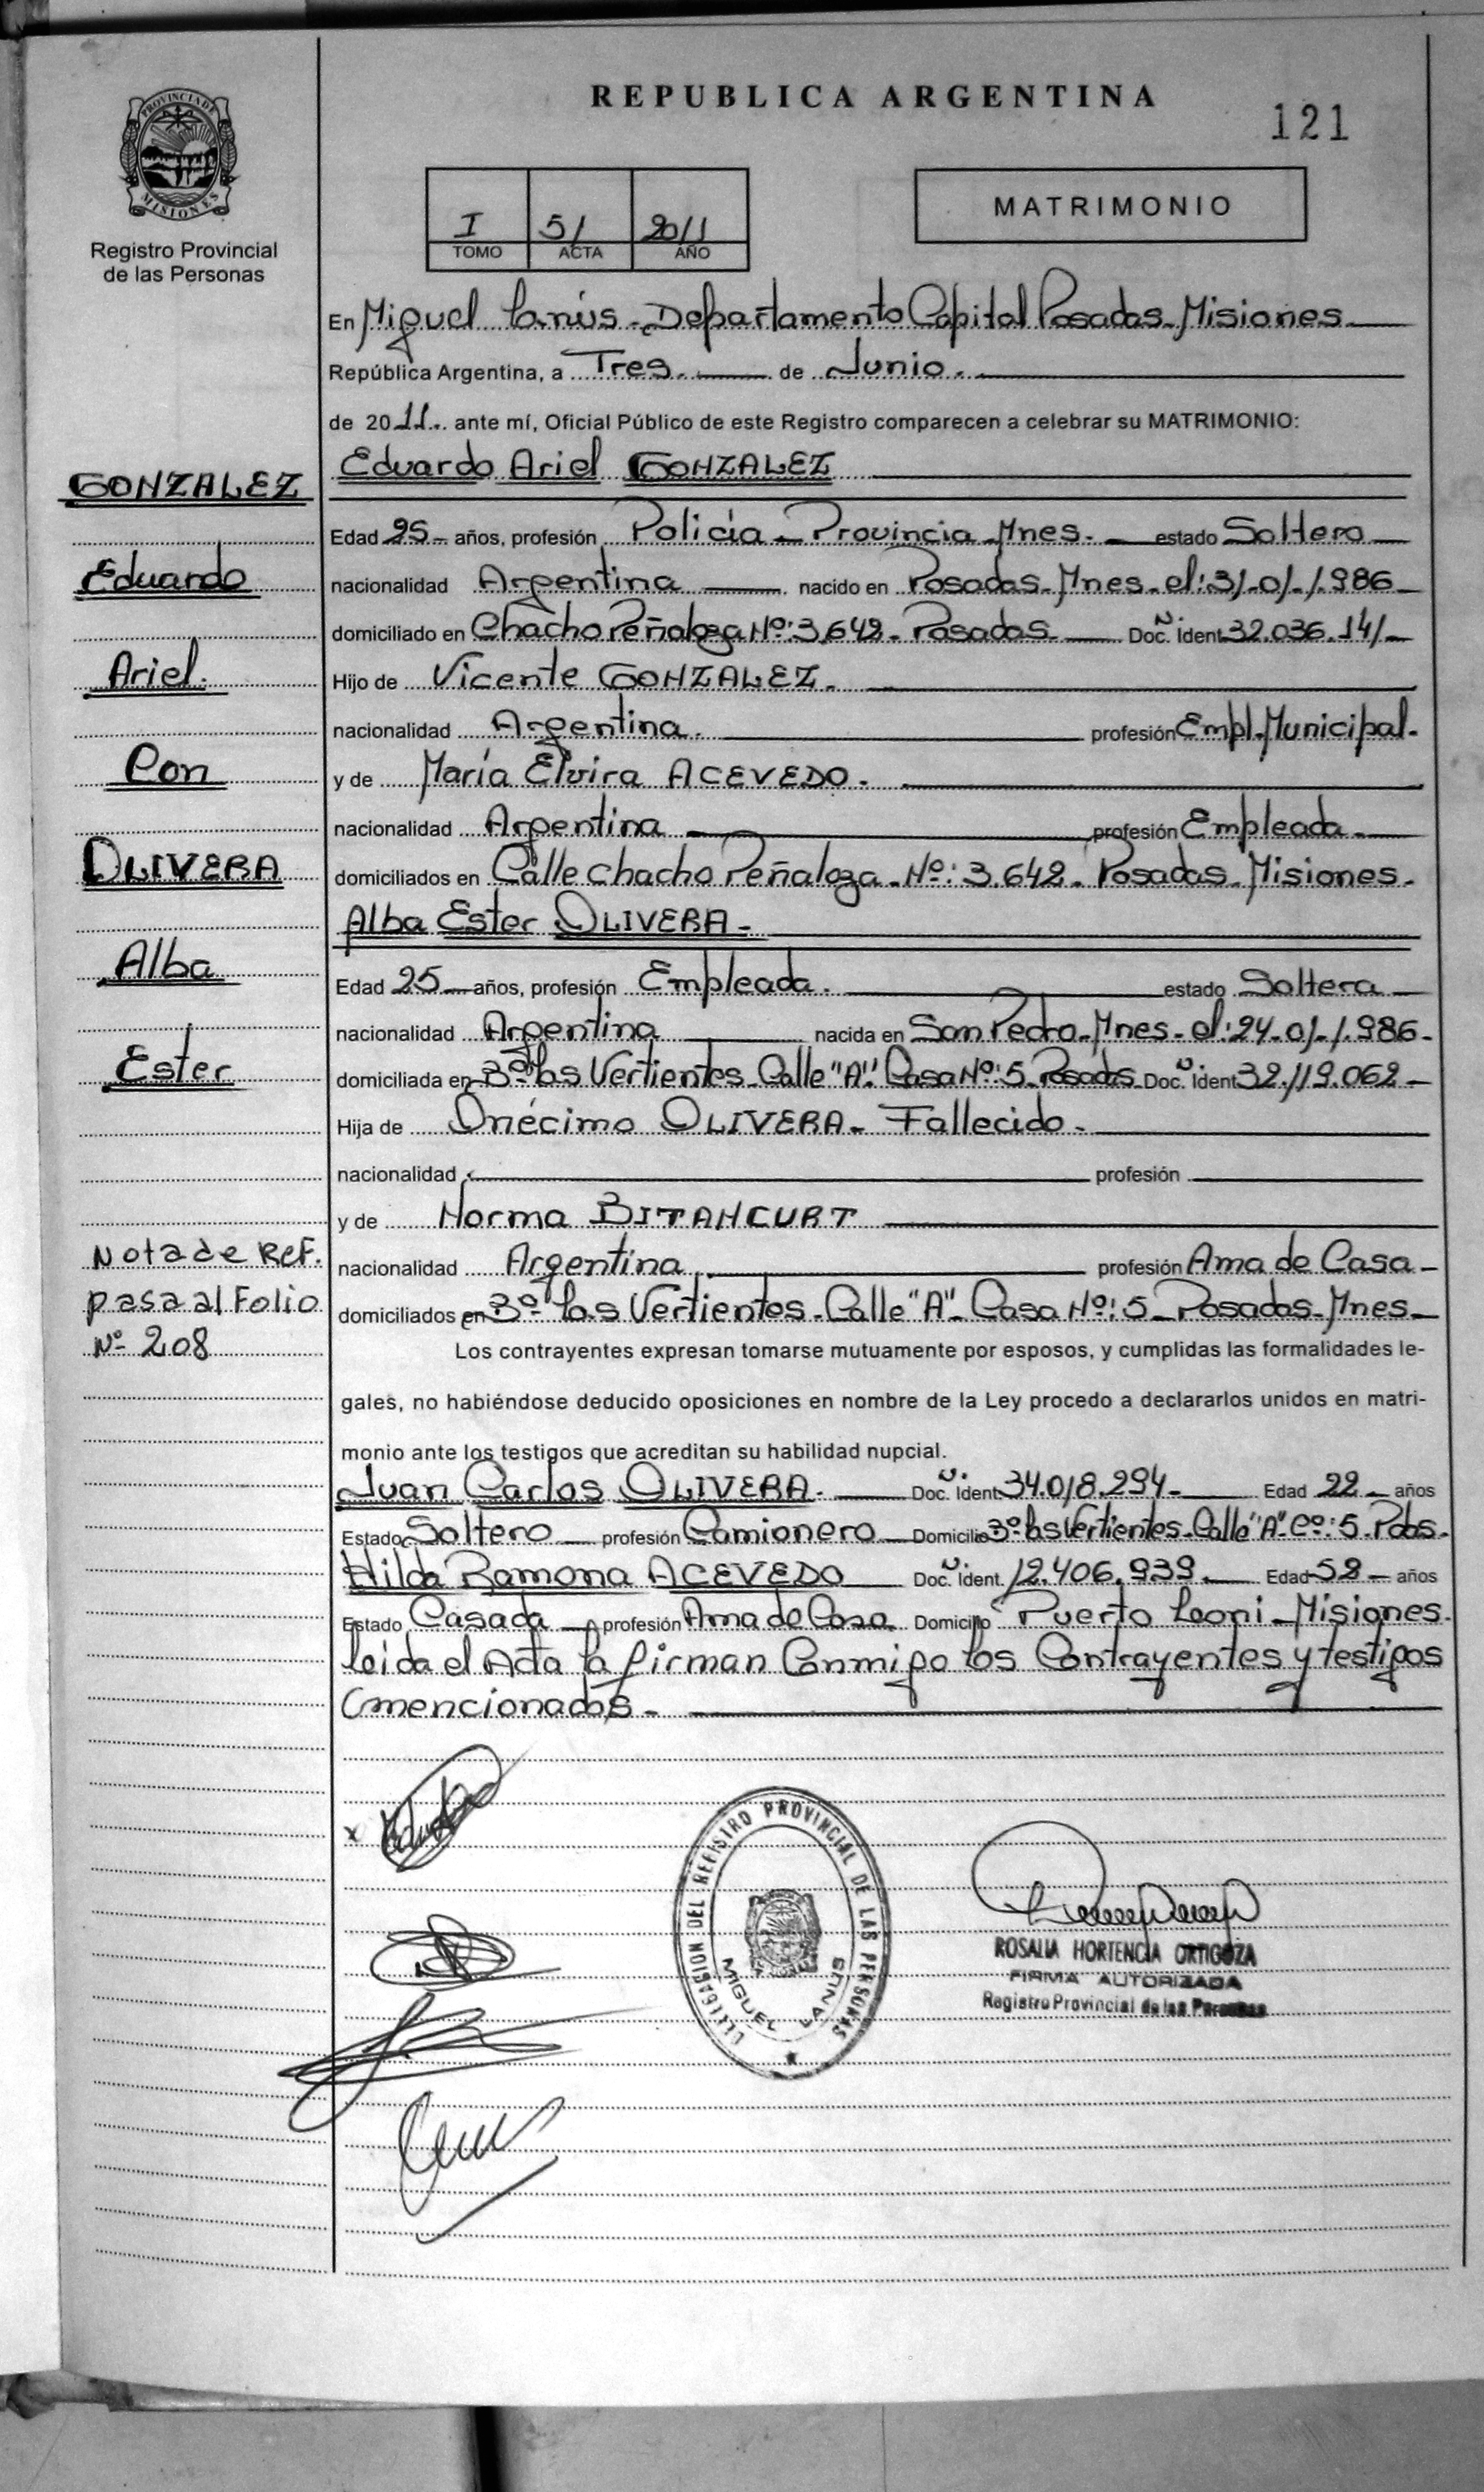 REPUBLICA ARGENTINA
121
PROVINCIA DE
MISIONES
Registro Provincial
de las Personas
I 51 2011
TOMO ACTA AÑO
MATRIMONIO
En Miguel Lanús - Departamento Capital Posadas - Misiones
República Argentina, a Tres. de Junio.
de 2011. ante mí, Oficial Público de este Registro comparecen a celebrar su MATRIMONIO:
Eduardo Ariel GONZALEZ
GONZALEZ
Eduardo
Ariel.
Con
OLIVERA
Alba
Ester
Edad 25 - años, profesión Policía - Provincia Mnes. - estado Soltero
nacionalidad Argentina nacido en Posadas - Mnes - el: 31-01-1.986
domiciliado en Chacho Peñaloza Nº: 3.642 - Posadas Doc. Ident 32.036.141
Hijo de Vicente GONZALEZ.
nacionalidad Argentina. profesión Empl. Municipal.
y de María Elvira ACEVEDO.
nacionalidad Argentina profesión Empleada
domiciliados en Calle Chacho Peñaloza - Nº: 3.642 - Posadas - Misiones.
Alba Ester OLIVERA -
Edad 25 años, profesión Empleada. estado Soltera
nacionalidad Argentina nacida en San Pedro - Mnes - el: 24-01-1.986-
domiciliada en Bº las Vertientes - Calle "A" Casa Nº: 5 - Posadas - Doc. Ident 32.119.062
Hija de Onécimo OLIVERA - Fallecido -
nacionalidad profesión
y de Norma BITANCURT
nacionalidad Argentina profesión Ama de Casa -
domiciliados en Bº las Vertientes - Calle "A" - Casa Nº: 5 - Posadas - Mnes -
Nota de Ref.
pasa al Folio
Nº 208
Los contrayentes expresan tomarse mutuamente por esposos, y cumplidas las formalidades le-
gales, no habiéndose deducido oposiciones en nombre de la Ley procedo a declararlos unidos en matri-
monio ante los testigos que acreditan su habilidad nupcial.
Juan Carlos OLIVERA. Doc. Ident 34.018.294 - Edad 22 - años
Estado Soltero profesión Camionero Domicilio Bº las Vertientes - Calle "A" Cº: 5 - Pdas.
Hilda Ramona ACEVEDO Doc. Ident. 12.406.939. Edad 52 - años
Estado Casada profesión Ama de Casa Domicilio Puerto Leoni - Misiones.
Leida el Acta la firman Conmigo los Contrayentes y testigos
mencionados -
x
DELEGACION DEL REGISTRO PROVINCIAL DE LAS PERSONAS
MIGUEL LANUS
ROSALIA HORTENCIA ORTIGOZA
FIRMA AUTORIZADA
Registro Provincial de las Personas